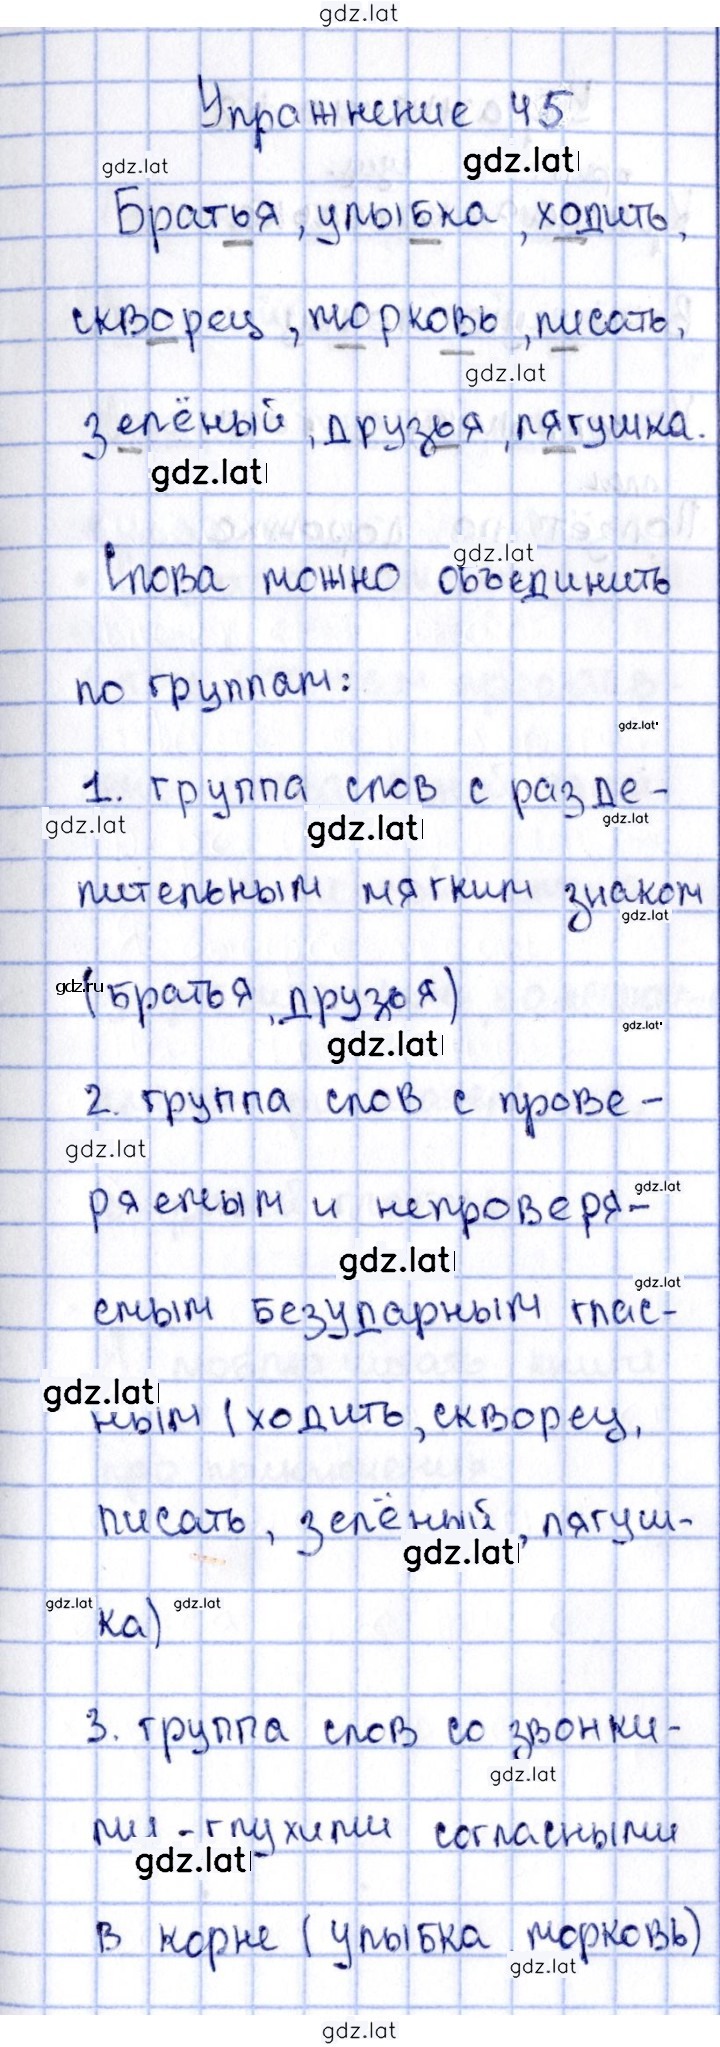 gdz.lat
Упражнение 45
gdz.lat gdz.lat
Братья, улыбка, ходить,
скворец, морковь, писать,
gdz.lat
зелёный, друзья, лягушка.
gdz.lat
gdz.lat
Слова можно объединить
по группам:
gdz.lat
1. группа слов с разде-
gdz.lat gdz.lat gdz.lat
лительным мягким знаком
gdz.lat
gdz.ru (братья, друзья)
gdz.lat
gdz.lat
2. группа слов с прове-
gdz.lat
ряемым и непроверя-
gdz.lat
gdz.lat
gdz.lat
емым безударным глас-
gdz.lat
ным (ходить, скворец,
писать, зелёный, лягуш-
gdz.lat
gdz.lat gdz.lat
ка)
3. группа слов со звонки-
gdz.lat
ми-глухими согласными
gdz.lat
в корне (улыбка морковь)
gdz.lat
gdz.lat